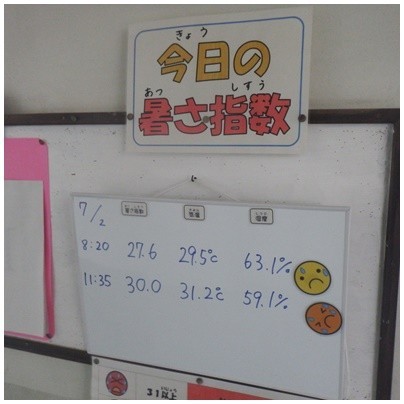 きょう
今日の
あつ しすう
暑さ指数
7/2
暑さ指数 気温 湿度
8:20 27.6 29.5℃ 63.1%
11:35 30.0 31.2℃ 59.1%
31以上